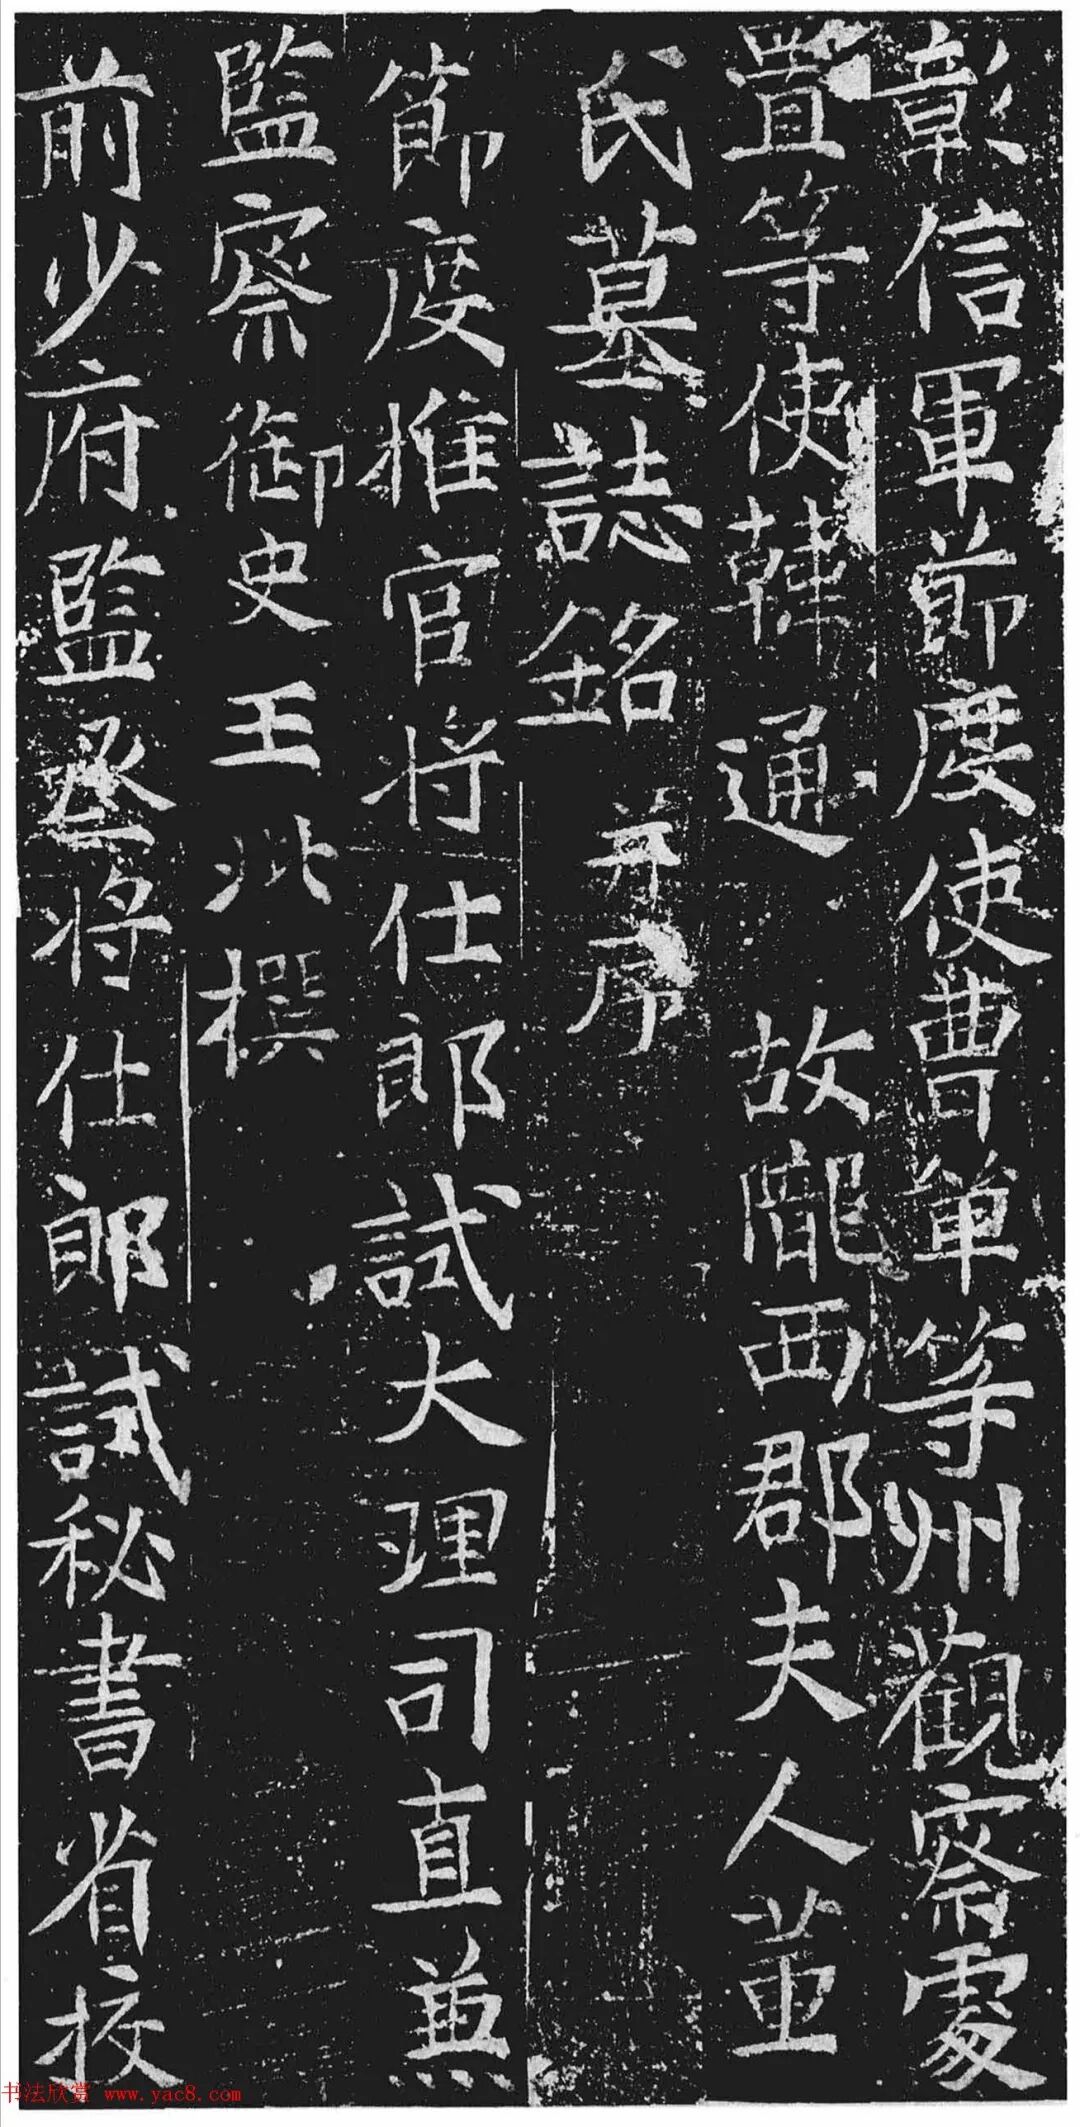 彰信軍節度使曹單等州觀察處
置等使韓通 故隴西郡夫人董
氏墓誌銘 并序
節度推官将仕郎試大理司直兼
監察御史王撰
前少府監丞将仕郎試秘書省校
书法欣赏 www.yac8.com